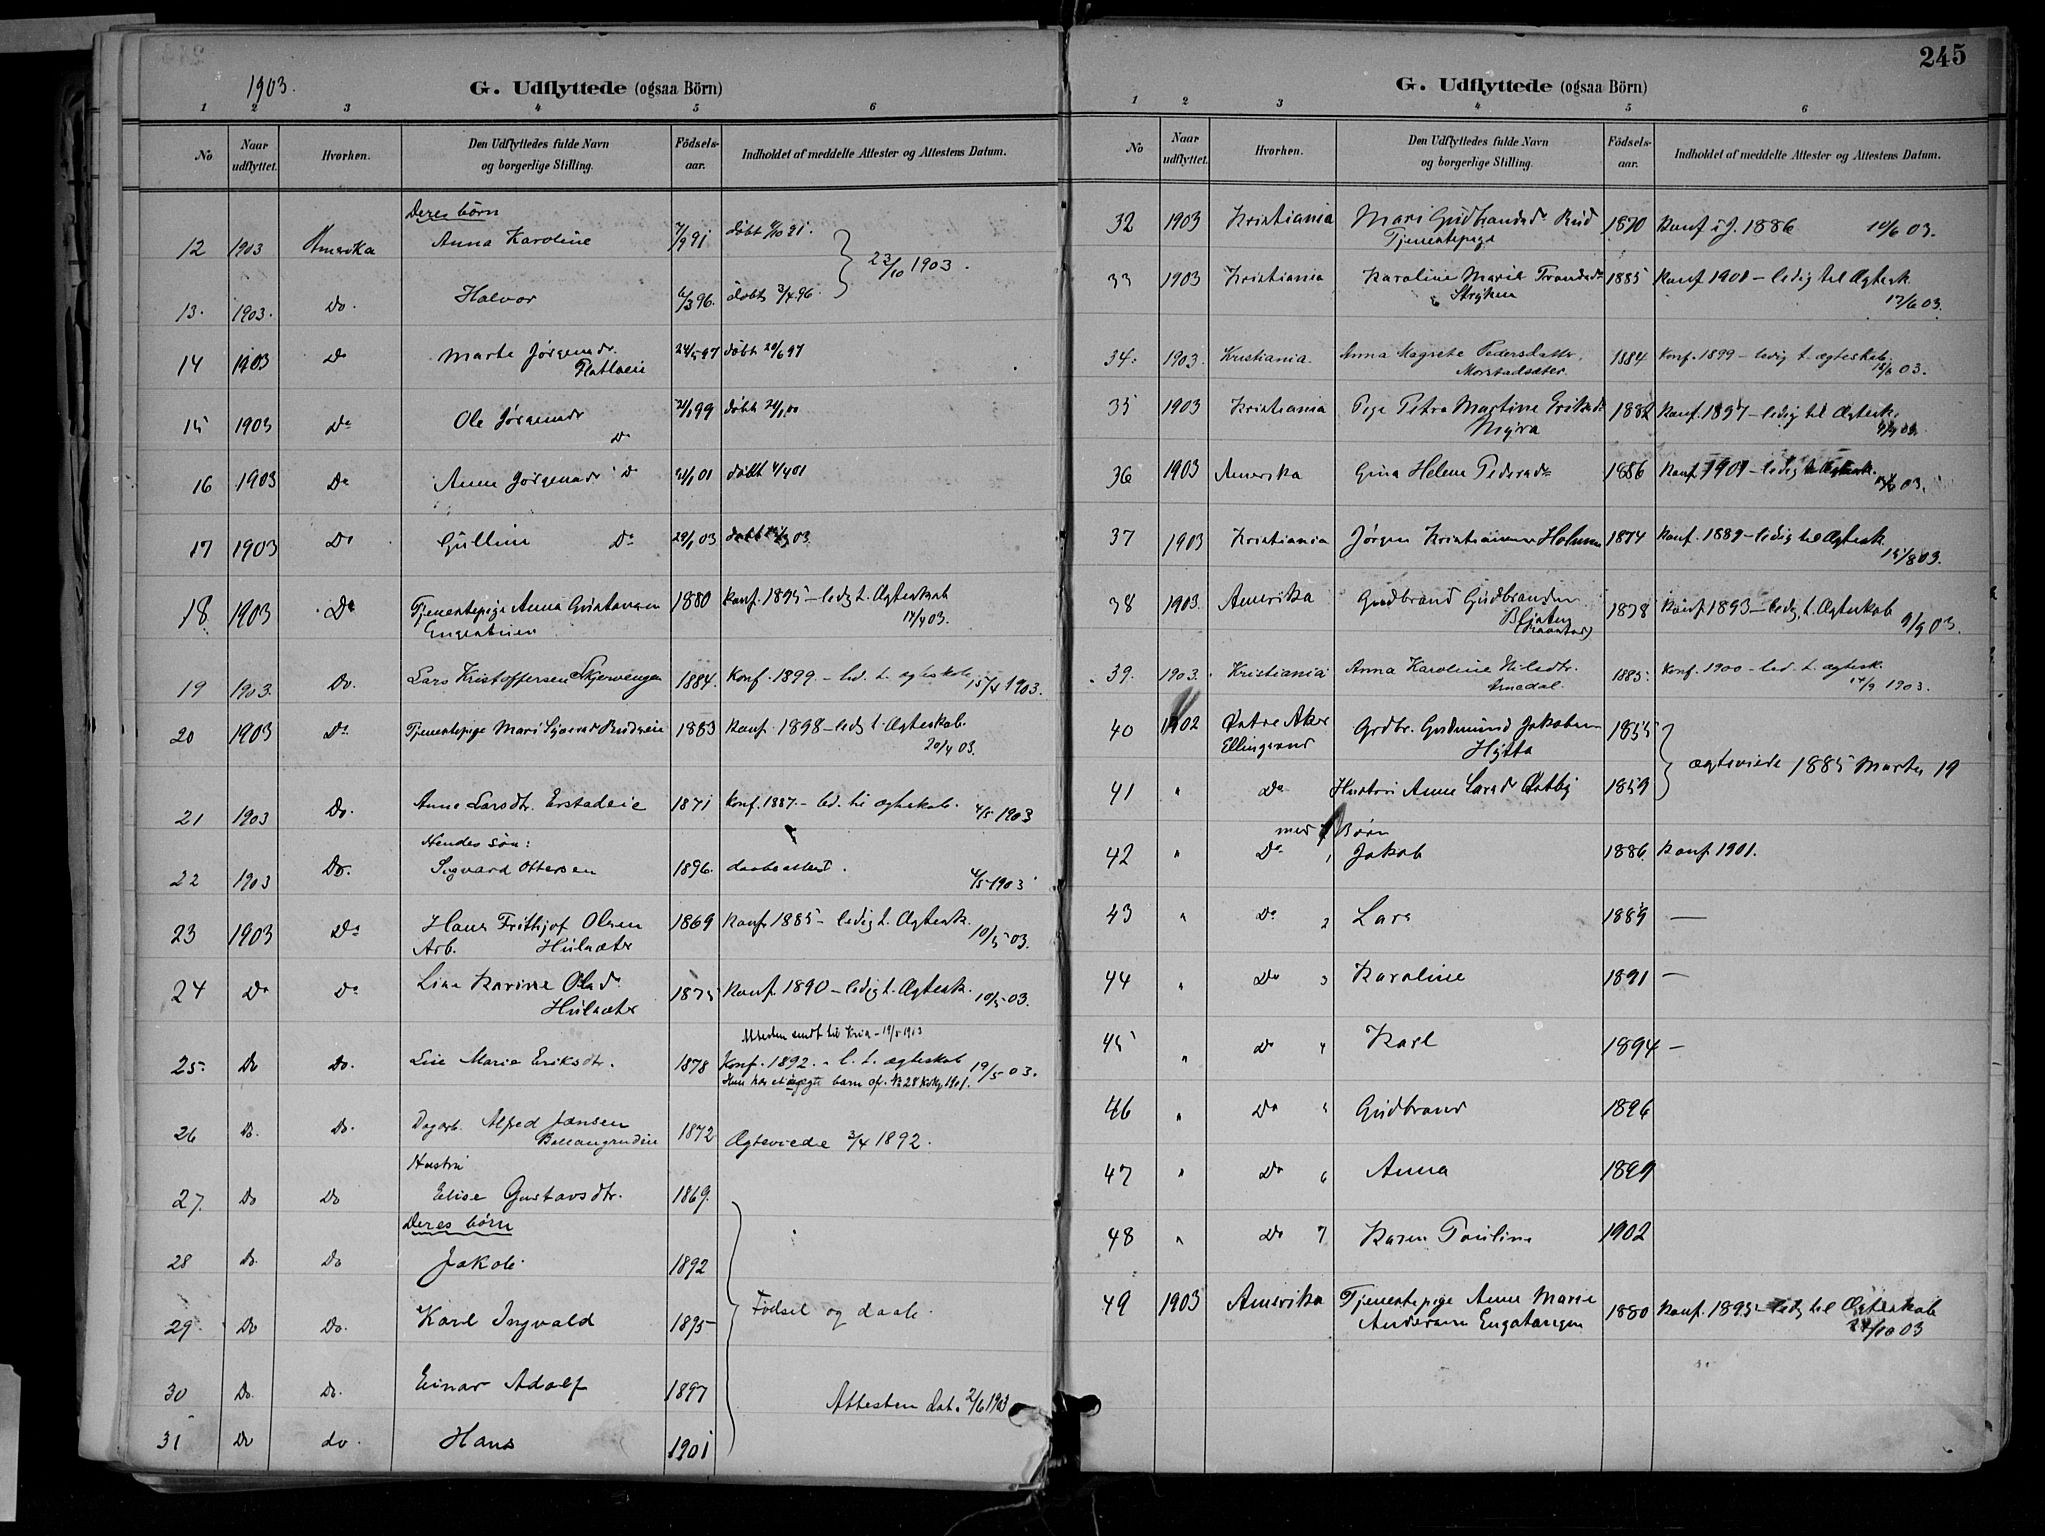 1903.
G. Udflyttede (ogsaa Börn)
1 2 3 4 5 6
No
Naar udflyttet.
Hvorhen.
Den Udflyttedes fulde Navn og borgerlige Stilling.
Födsels-aar.
Indholdet af meddelte Attester og Attestens Datum.
Deres börn
12 1903 Amerika Anna Karoline 7/9 91 döbt 4/10 91.
23/10 1903.
13. 1903. Do. Halvor 6/3 96. döbt 3/4 96.
14 1903 Do Marte Jørgensd.
24/5 97 döbt 20/6 97
15 1903 Do Ole Jørgensen Do 99 döbt
16 1903 Do Anne Jørgensd. Do 01 döbt 4/4 01
17 1903 Do Gulline Do 29/1 03 döbt 03.
18 1903 Do Tjenestepige Anna Gustavsen 1880 Konf. 1895 – ledig t. Ægteskab
17/4 03.
19 1903. Do. Lars Kristoffersen Skjervengen 1884. Konf. 1899. – led. t. ægteskab 15/4 1903.
20 1903 Do Tjenestepige Mari 1883 Konf. 1898 – ledig t. Ægteskab.
20/4 03.
21 1903 Do. Anne Larsdtr. 1871 Konf. 1887. – led. til ægteskab. 4/5 1903
Hendes sön:
22 1903 Do. Sigvard Ottersen 1896. daabsattest. 4/5 1903
23 1903 Do Hans Frithjof Olsen 1869 Konf. 1885 – ledig t. Ægtesk. 10/5 03.
Arb. Hulsæter
24 Do Do Lina Karine Olsd. 1875 Konf. 1890 – ledig t. Ægtesk. 10/5 03.
Hulsæter
Attesten sendt til Kria – 19/5 1903
25. Do Do. Lise Marie Eriksdtr. 1878 Konf. 1892. – l. t. ægteskab 19/5 03.
Hun har et uægte barn
26 Do. Do. Dagarb. Alfred Jansen 1872 Ægteviede 3/4 1892.
Hustru
27. Do Do Elise Gustavsdtr. 1869.
Deres börn
28 Do. Do Jakob. 1892
29. Do Do. Karl Ingvald 1895 Födsel og daab.
30 Do. Do. Einar Adolf 1897
Attesten dat. 2/6 1903
31 Do do. Hans 1901
245
G. Udflyttede (ogsaa Börn)
1 2 3 4 5 6
No
Naar udflyttet.
Hvorhen.
Den Udflyttedes fulde Navn og borgerlige Stilling.
Födsels-aar.
Indholdet af meddelte Attester og Attestens Datum.
32 1903 Kristiania Mari Gudbrandsd. Rud 1870 Konf. i J. 1886 10/6 03.
Tjenestepige
33 1903 Kristiania Karoline Marie Trondsd. 1885 Konf 1901 – ledig til Ægtesk.
Stryken 17/6 03.
34. 1903. Kristiania. Anna Magrete Pedersdatter, 1884 Konf. 1899 – ledig t. ægteskab.
Morstadsæter. 18/6 03.
35 1903 Kristiania Pige Petra Martine Eriksd. 1882 Konf. 1897 – ledig til Ægtesk.
Myra
36 1903 Amerika Gina Helene Pedersd. 1886 Konf. 1901 – ledig til Ægtesk.
03.
37 1903 Kristiania Jørgen Kristiansen Holmen 1874 Konf. 1889 – ledig til Ægtesk.
15/8 03.
38 1903. Amerika Gudbrand Gudbrandsen 1878 Konf. 1893 – ledig t. Ægteskab
9/9 03.
39. 1903. Kristiania Anna Karoline Nilsdtr. 1885. Konf. 1900 – led. t. ægtesk.
17/9 1903.
40 1902 Østre Aker Grdbr. Gudmund Jakobsen 1855
Ellingsrud Hytta
ægteviede 1885 Marts 19
41 " Do Hustru Anne Larsd. Østby 1859
med 7 Börn
42 " Do 1 Jakob 1886 Konf. 1901.
43 " Do 2 Lars 1889 —
44 " Do 3 Karoline 1891 —
45 " Do 4 Karl 1894 —
46 " Do 5 Gudbrand 1896
47 " Do 6 Anna 1899
48 " Do 7 Karen Pauline 1902
49 1903 Amerika Tjenestepige Anne Marie 1880 Konf. 1895 – ledig til Ægteskab
Andersen Engatangen 24/10 03